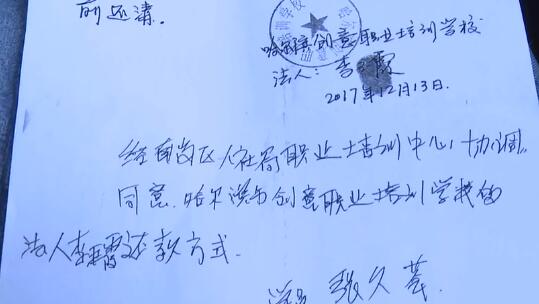 前还清.
哈尔滨创意职业培训学校
法人: 李
2017年12月13日.
经南岗区人社局职业培训中心协调
同意.哈尔滨市创意职业培训学校的
法人李雪还款方式.
学员 张久